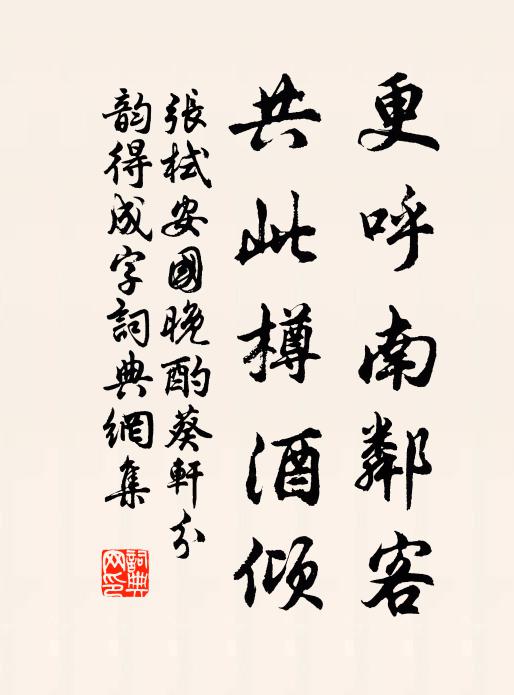 更呼南鄰客
共此樽酒傾
張栻安國晚酌葵軒分
韵得成字詞典網集
詞典网印